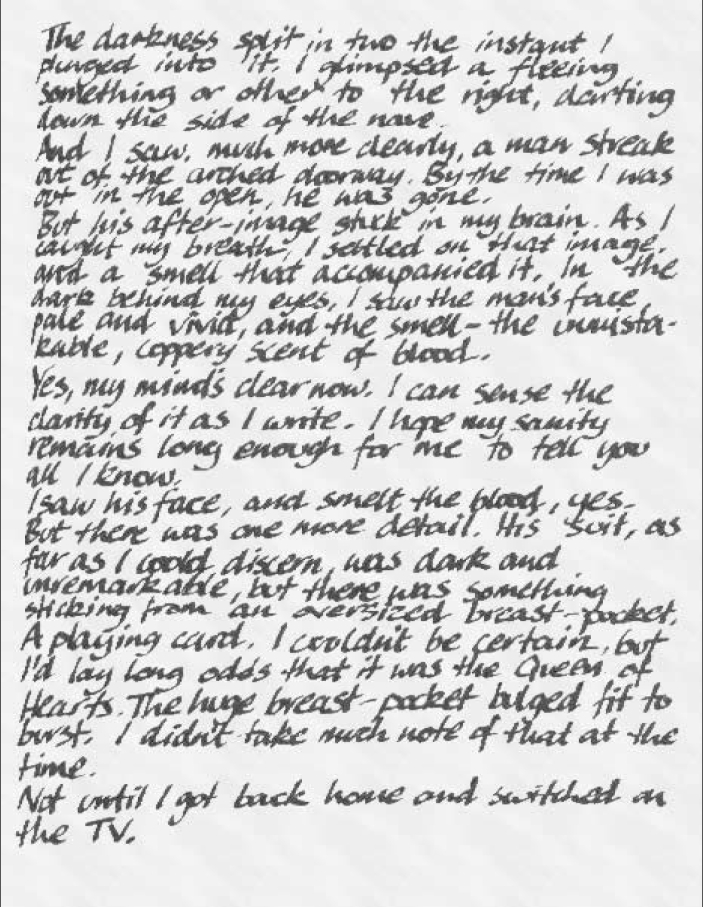 The darkness split in two the instant I
plunged into it. I glimpsed a fleeing
something or other to the right, darting
down the side of the nave.
And I saw, much more clearly, a man streak
out of the arched doorway. By the time I was
out in the open, he was gone.
But his after-image stuck in my brain. As I
caught my breath, I settled on that image,
and a smell that accompanied it. In the
dark behind my eyes, I saw the man's face,
pale and vivid, and the smell- the unmista-
kable, coppery scent of blood.
Yes, my mind's clear now. I can sense the
clarity of it as I write. I hope my sanity
remains long enough for me to tell you
all I know.
I saw his face, and smelt the blood, yes.
But there was one more detail. His suit, as
far as I could discern, was dark and
unremarkable, but there was something
sticking from an oversized breast-pocket.
A playing card. I couldn't be certain, but
I'd lay long odds that it was the Queen of
Hearts. The huge breast-pocket bulged fit to
burst. I didn't take much note of that at the
time.
Not until I got back home and switched on
the TV.